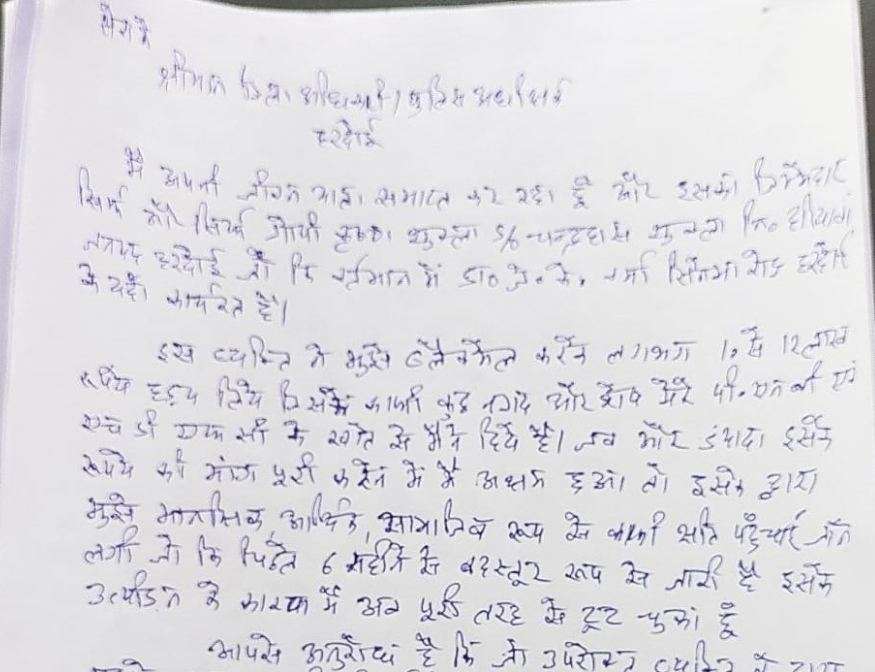 सेवा में
श्रीमान जिला अधिकारी / पुलिस अधीक्षक
हरदोई
मैं अपनी जीवन यात्रा समाप्त कर रहा हूँ और इसका जिम्मेदार
सिर्फ और सिर्फ गोपी कृष्ण शुक्ला S/o शुक्ला नि०
जनपद हरदोई जो कि वर्तमान में डा० जे० के० वर्मा सिनेमा रोड हरदोई
के यहाँ कार्यरत है।
इस व्यक्ति ने मुझे ब्लैकमेल करके लगभग 10 से 12 लाख
रूपये हड़प लिये जिसमें काफी कुछ नगद और शेष मेरे पी०एन बी एवं
एच डी एफ सी के खाते से मैंने दिये है। जब और ज्यादा इसके
रूपये की मांग पूरी करने में मैं अक्षम हुआ तो इसके द्वारा
मुझे मानसिक, आर्थिक, सामाजिक रूप से काफी क्षति पहुँचाई जाने
लगी जो कि पिछले 6 महीने से बदस्तूर रूप से जारी है इसके
उत्पीडन के कारण मैं अब पूरी तरह से टूट चुका हूँ
आपसे अनुरोध है कि जो उपरोक्त व्यक्ति